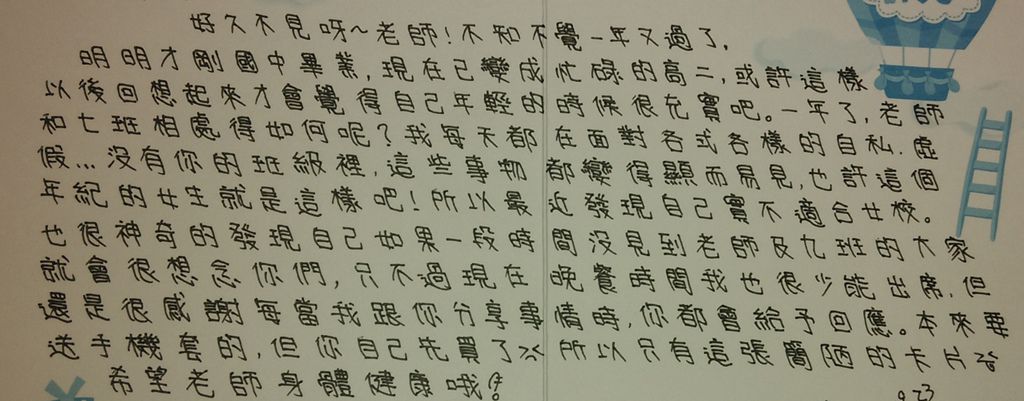 好久不見呀～老師！不知不覺一年又過了，
明明才剛國中畢業，現在已變成忙碌的高二，或許這樣
以後回想起來才會覺得自己年輕的時候很充實吧。一年了，老師
和七班相處得如何呢？我每天都在面對各式各樣的自私、虛
假…沒有你的班級裡，這些事物都變得顯而易見，也許這個
年紀的女生就是這樣吧！所以最近發現自己實不適合女校。
也很神奇的發現自己如果一段時間沒見到老師及九班的大家
就會很想念你們，只不過現在晚餐時間我也很少能出席，但
還是很感謝每當我跟你分享事情時，你都會給予回應。本來要
送手機套的，但你自己先買了 所以只有這張簡陋的卡片
希望老師身體健康哦！
9.23